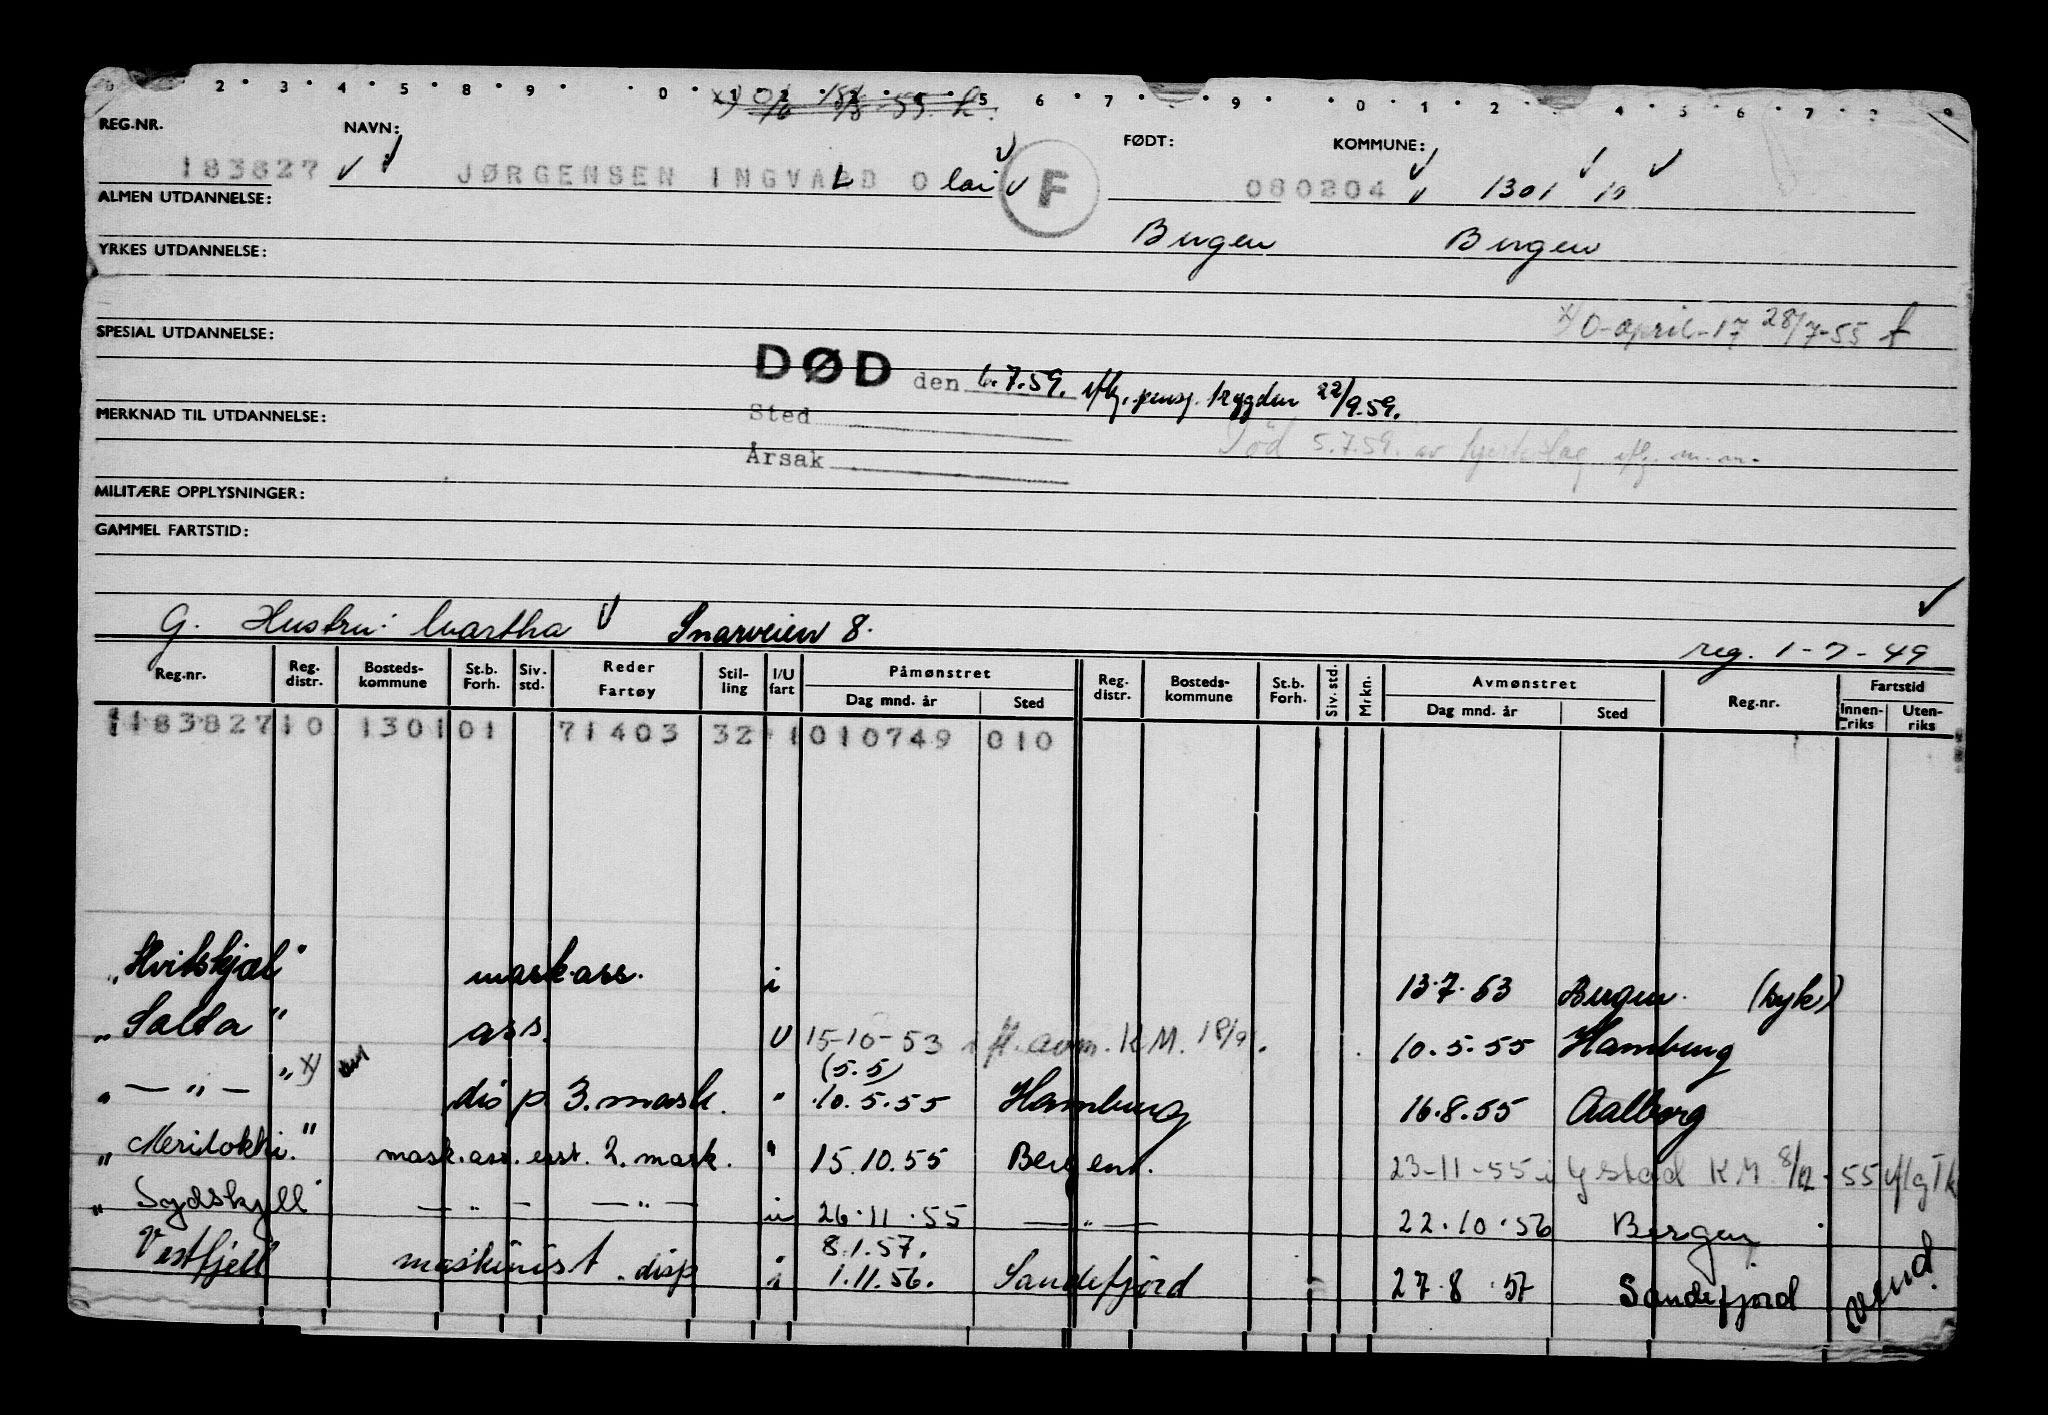 0 2 3 4 5 8 9 0 1 2 3 4 5 6 7 9 0 1 2 4 5 6 7 9
REG.NR. NAVN: FØDT: KOMMUNE:
183827 JØRGENSEN INGVALD Olai F 080204 1301 10
ALMEN UTDANNELSE:
Bergen Bergen
YRKES UTDANNELSE:
x) 0-april-17 28/7-55
SPESIAL UTDANNELSE:
DØD den 6.7.59. iflg. pensj. trygden 22/9.59.
MERKNAD TIL UTDANNELSE: Sted
Død 5.7.59. av hjerteslag iflg. m.m.
Årsak
MILITÆRE OPPLYSNINGER:
GAMMEL FARTSTID:
G. Hustru: Martha Snarveien 8.
reg. 1-7-49
Reg.nr. Reg. distr. Bosteds-kommune St.b. Forh. Siv. std. Reder Fartøy Stil-ling I/U fart Påmønstret Dag mnd. år Sted Reg. distr. Bosteds-kommune St.b. Forh. Siv. std. Mrkn. Avmønstret Dag mnd. år Sted Reg.nr. Fartstid Innen-riks Uten-riks
183827 10 1301 01 71403 32 1 010749 010
"Hvitskjæl" mask.ass. i 13.7.53 Bergen. (syk)
"Salta" ass. U 15-10-53 avm. KM. 18/9. 10.5.55 Hamburg
(5.5)
" — " — " x) disp 3. mask. " 10.5.55 Hamburg 16.8.55 Aalborg
" " mask.ass. 2. mask. " 15.10.55 Bergen. 23-11-55 i Ystad KM 8/12-55 iflg Tk
"Sydskjell" — " — — " — 26.11.55 — " — 22.10.56 Bergen
8.1.57.
Vestfjell maskinist disp " 1.11.56. Sandefjord 27.8.57 Sandefjord
vend